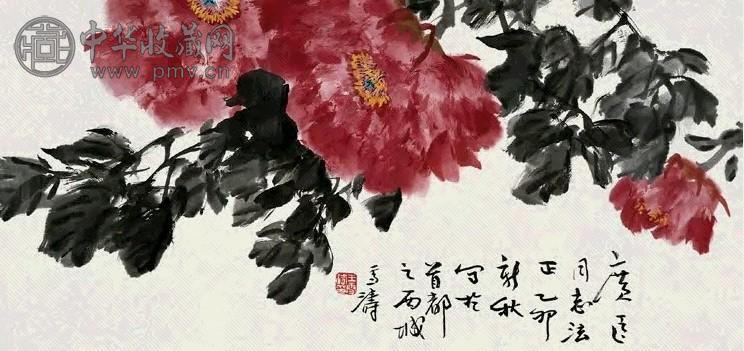 中华收藏网
www.pmv.cn
广
同志法
正乙卯
新秋
写于
首都
之西城
雪涛